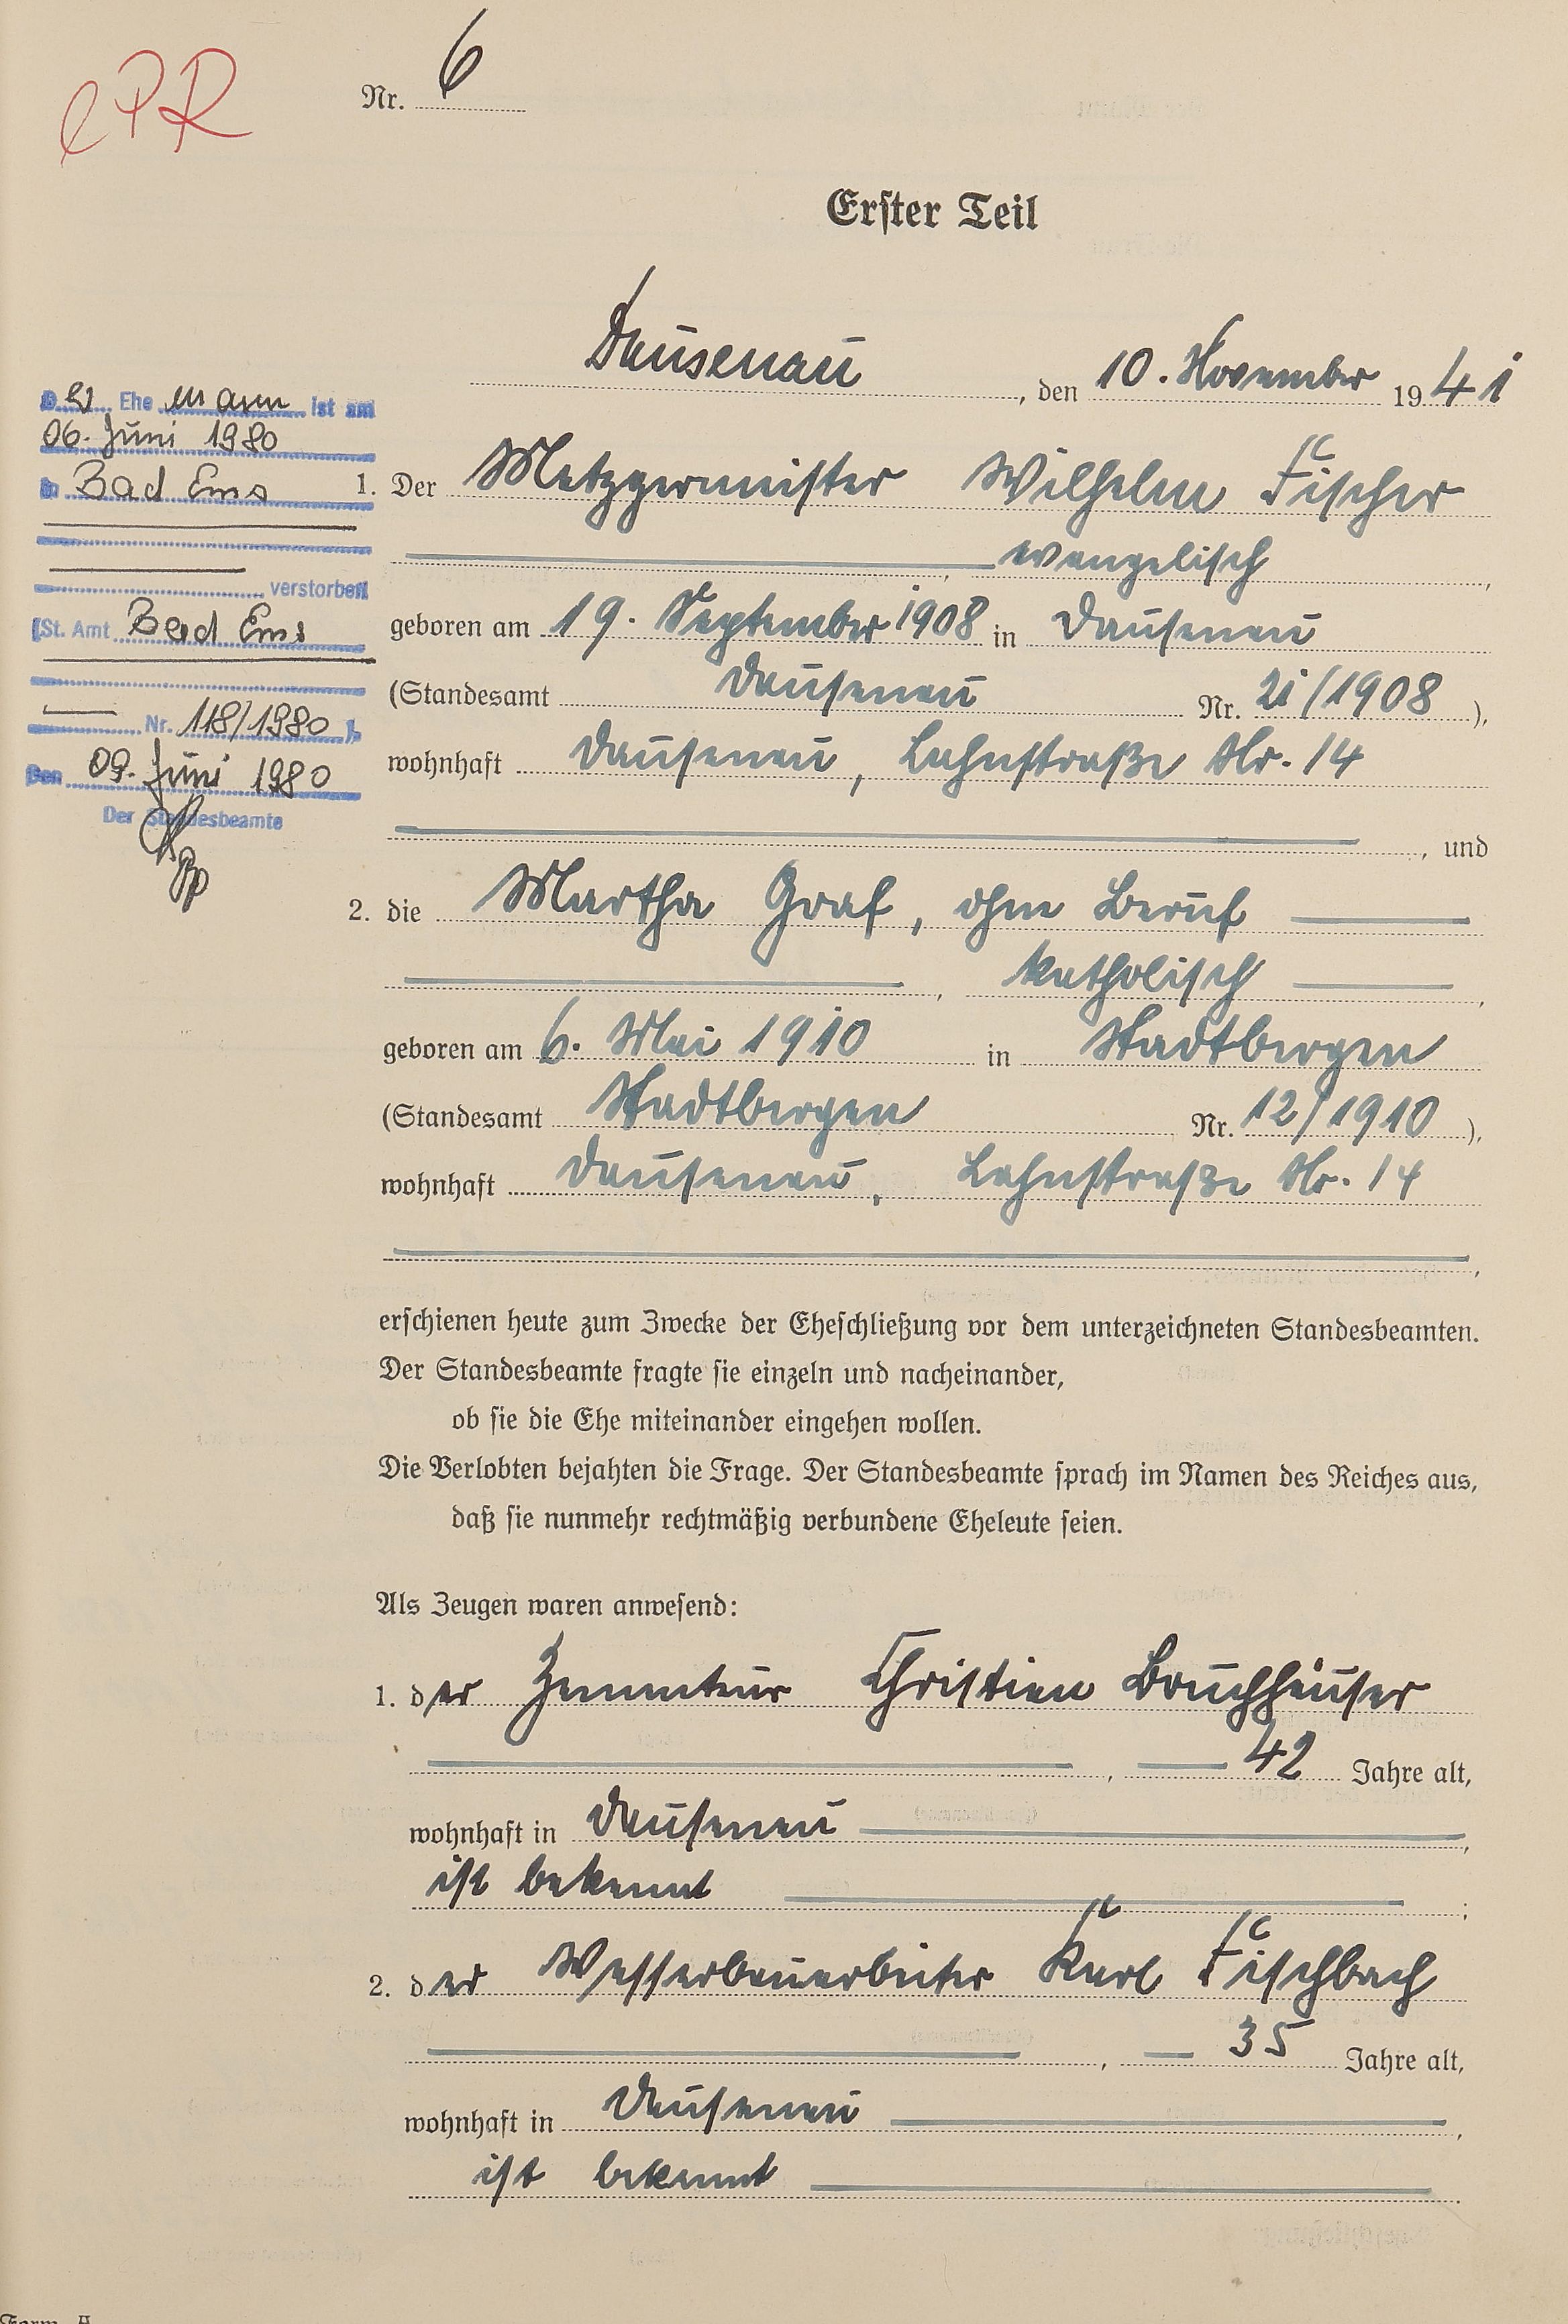 ePR
Nr. 6
Erster Teil
Dausenau, den 10. November 1941
Der Ehe mann ist am
06. Juni 1980
in Bad Ems
verstorben
(St. Amt Bad Ems
Nr. 118/1980).
Den 09. Juni 1980
Der Standesbeamte
1. Der Metzgermeister Wilhelm Fischer
, evangelisch,
geboren am 19. September 1908 in Dausenau
(Standesamt Dausenau Nr. 21/1908),
wohnhaft Dausenau, Lahnstraße Nr. 14
, und
2. die Martha Graf, ohne Beruf
, katholisch,
geboren am 6. Mai 1910 in Stadtbergen
(Standesamt Stadtbergen Nr. 12/1910),
wohnhaft Dausenau, Lahnstraße Nr. 14
,
erschienen heute zum Zwecke der Eheschließung vor dem unterzeichneten Standesbeamten.
Der Standesbeamte fragte sie einzeln und nacheinander,
ob sie die Ehe miteinander eingehen wollen.
Die Verlobten bejahten die Frage. Der Standesbeamte sprach im Namen des Reiches aus,
daß sie nunmehr rechtmäßig verbundene Eheleute seien.
Als Zeugen waren anwesend:
1. der Christian Bruchhäuser
, 42 Jahre alt,
wohnhaft in Dausenau,
ist bekannt;
2. der Wasserbauarbeiter Karl Fischbach
, 35 Jahre alt,
wohnhaft in Dausenau,
ist bekannt.
Form. A